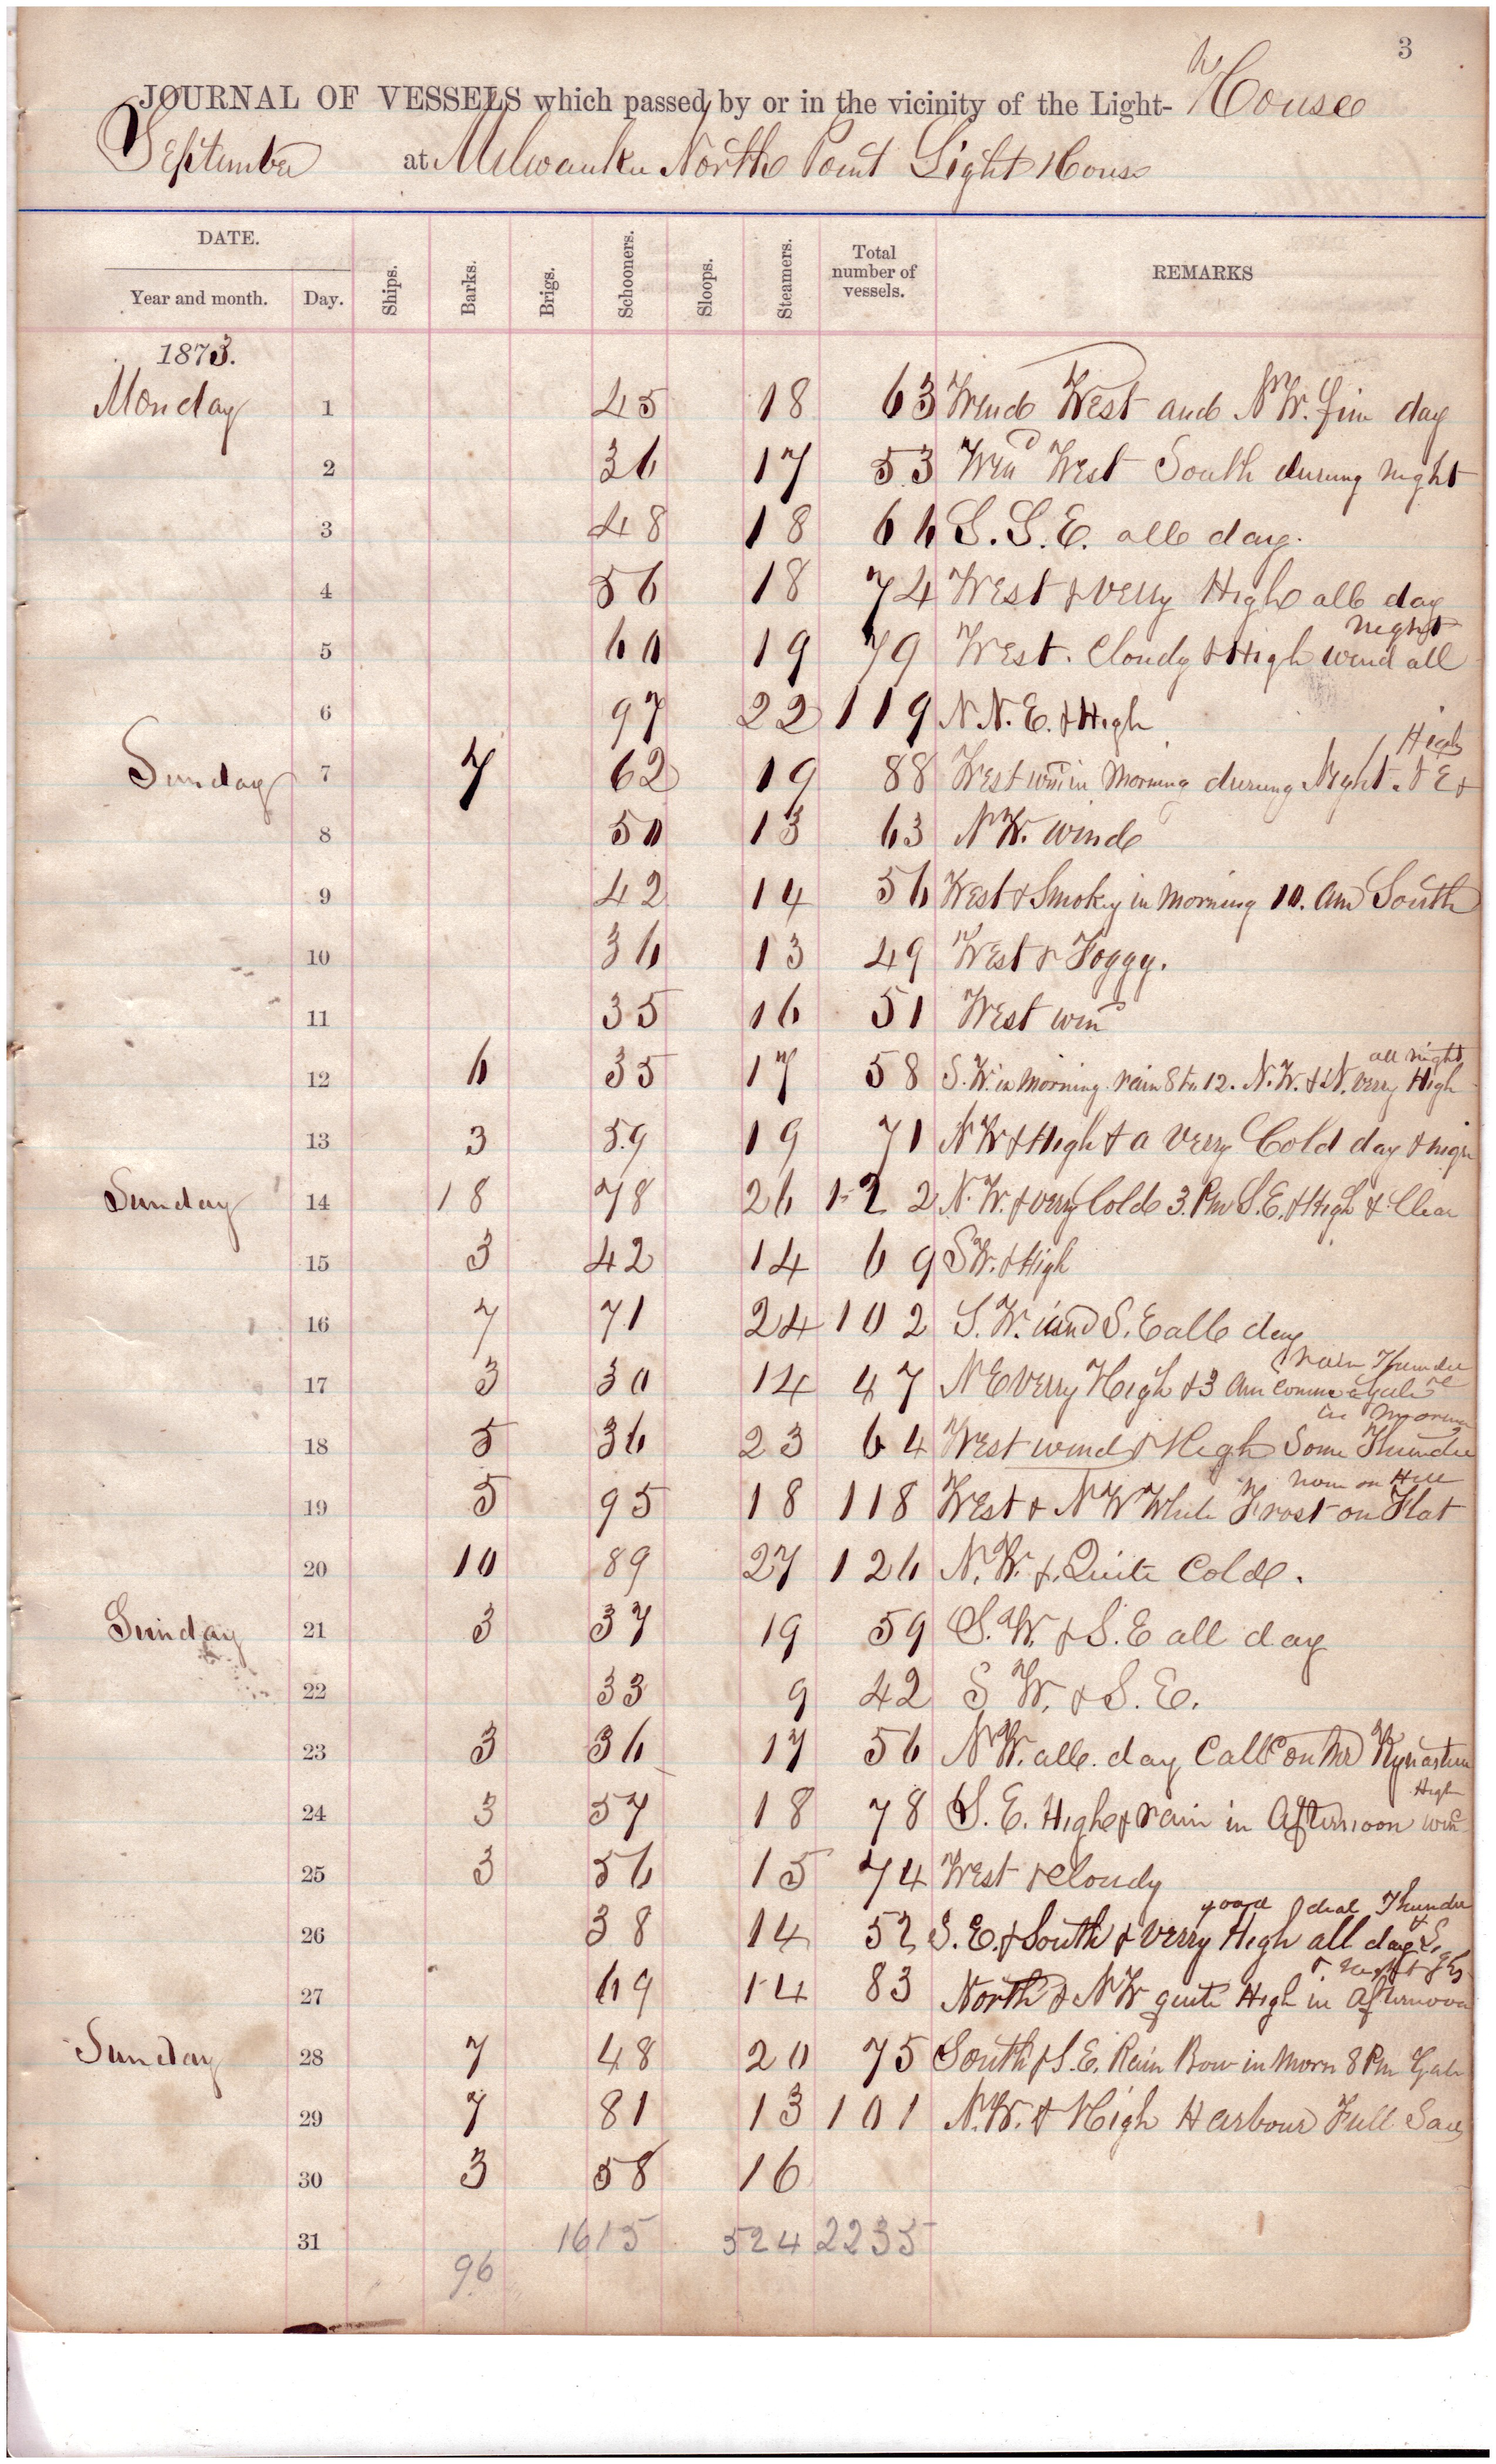 3
JOURNAL OF VESSELS which passed by or in the vicinity of the Light- House
September at Milwaukee North Point Light House
DATE. Ships. Barks. Brigs. Schooners. Sloops. Steamers. Total number of vessels. REMARKS
Year and month. Day.
1873.
Monday 1 45 18 63 Wind West and N W. fine day
2 36 17 53 Wind West South during night
3 48 18 66 S. S. E. all day.
4 56 18 74 West & verry High all day
5 60 19 79 West. Cloudy & High wind all night
6 97 22 119 N N. E. & High
Sunday 7 7 62 19 88 West win in Morning during Night. N E & High
8 50 13 63 N W. wind
9 42 14 56 West & Smokey in morning 10. am South
10 36 13 49 West & Foggy.
11 35 16 51 West wind
12 6 35 17 58 S. W. in Morning. rain 8 to 12. N. W. & N. verry High all night
13 3 59 19 71 N W & High & a verry Cold day & nigh
Sunday 14 18 78 26 122 N. W. & verry Cold 3. Pm S. E. & High & Clear
15 3 42 14 69 S W. & High
16 7 71 24 102 S. W. and S. E all day
17 3 30 14 47 N E verry High & 3 am a gale rain Thunder
18 5 36 23 64 West wind & High Some Thunder in Morning
19 5 95 18 118 West & N W White Frost on Flat none on Hill
20 10 89 27 126 N. W. &. Quite Cold.
Sunday 21 3 37 19 59 S. W. & S. E all day
22 33 9 42 S W. & S. E.
23 3 36 17 56 N W. all. day Call on Mr
24 3 57 18 78 S. E. High & rain in Afternoon High win
25 3 56 15 74 West & Cloudy
26 38 14 52 S. E. & South & verry High all day good deal Thunder &
27 69 14 83 North & N W quite High in afternoon & night
Sunday 28 7 48 20 75 South & S. E. Rain Bow in Morn 8 Pm Gale
29 7 81 13 101 N. W. & High Harbour Full Sail
30 3 58 16
31 1615 524 2235
96